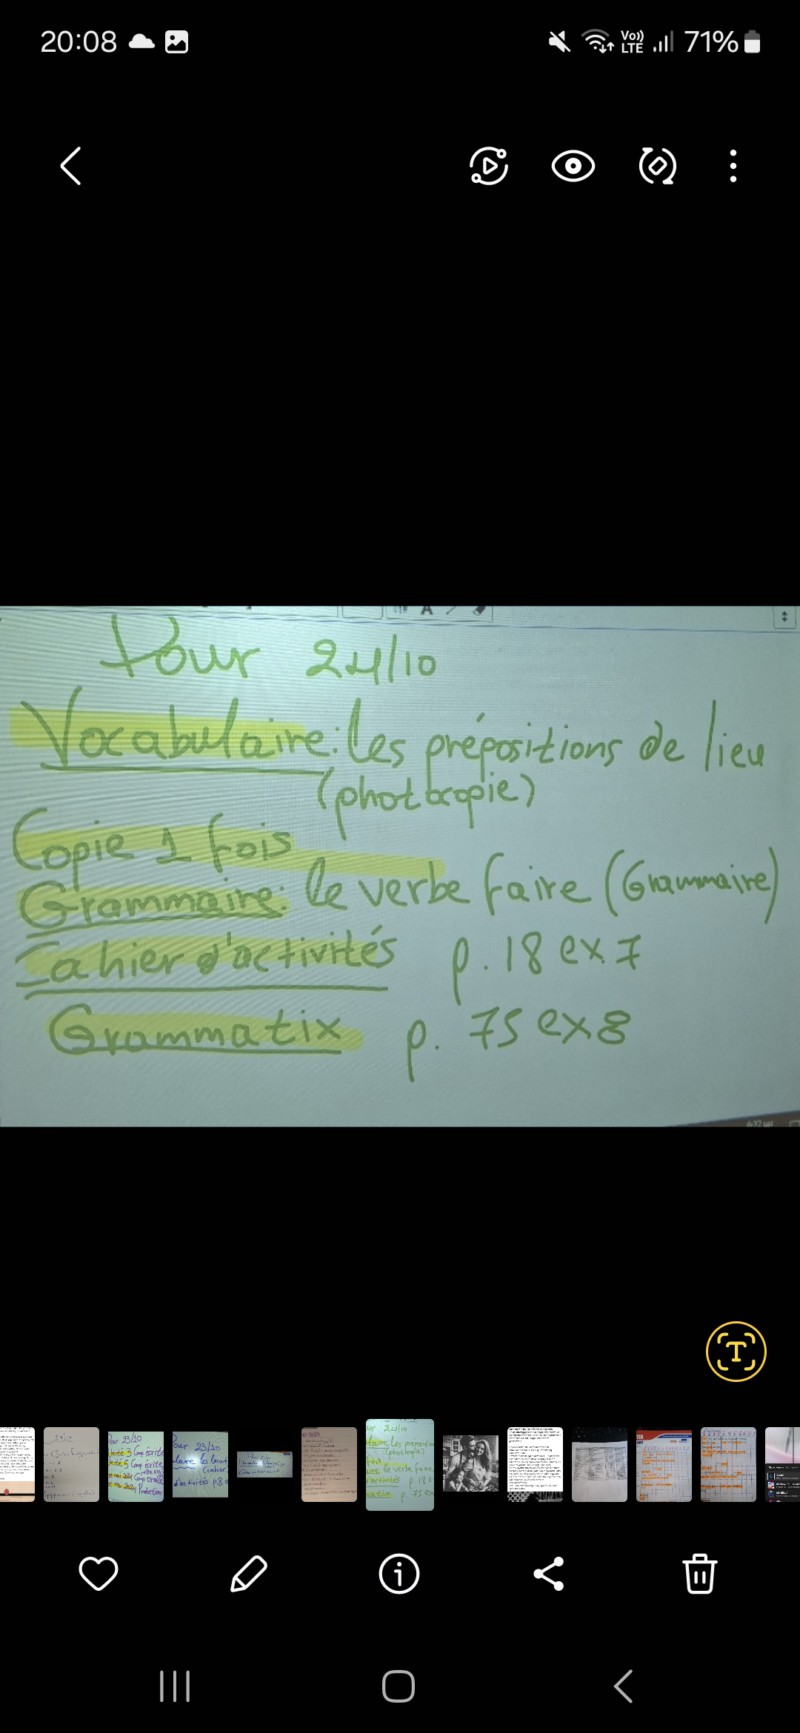 20:08
Vo))
LTE
71%
Pour 24/10
Vocabulaire: les prépositions de lieu
(photocopie)
Copie 1 fois
Grammaire: le verbe faire (Grammaire)
Cahier d'activités p. 18 ex 7
Grammatix p. 75 ex 8
T